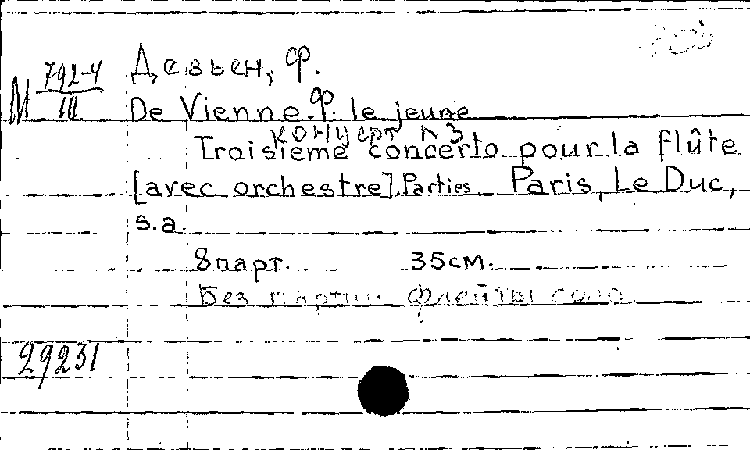 М 792-4
III
Девьен, Ф.
De Vienne Ф. le jeune
концерт N 3
Troisième concerto pour la flûte
[avec orchestre]. Parties. Paris, Le Duc,
s.a.
8 парт. 35 см.
Без партии флейты соло
29231